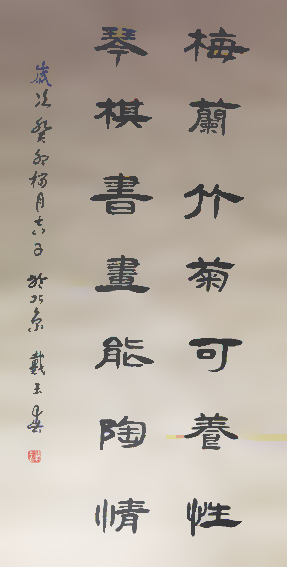 梅蘭竹菊可養性
琴棋書畫能陶情
歲次癸卯梅月吉日於北京 戴玉春